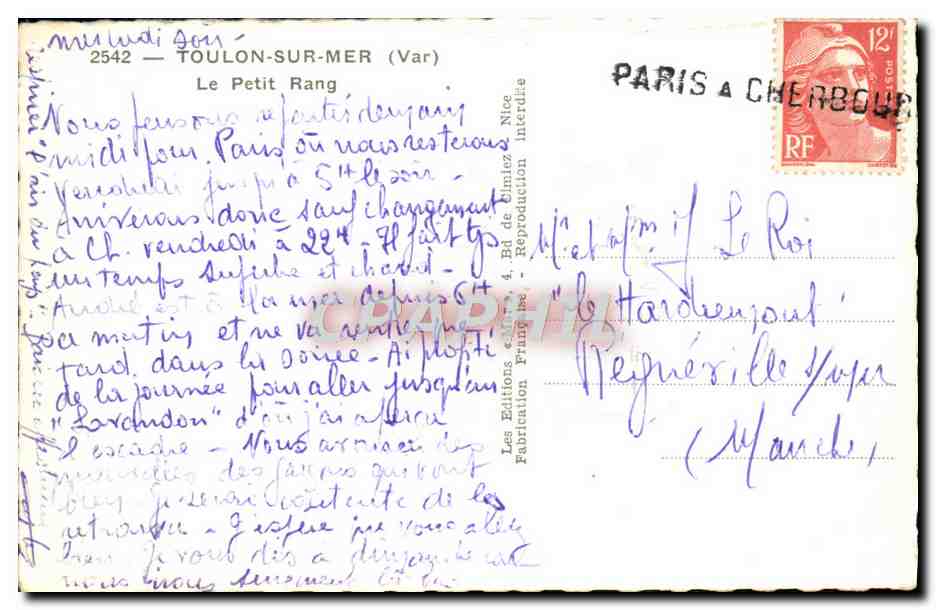 mercredi soir -
2542 — TOULON-SUR-MER (Var)
Le Petit Rang
Nous pensons repartir demain
midi pour Paris où nous resterons
Vendredi jusqu'à 5H le soir -
Arriverons donc sauf changement
à Ch. vendredi à 22H - Il fait tjs
un temps superbe et chaud -
André est à la mer depuis 6H
ce matin et ne va rentrer que
tard dans la soirée - Ai profité
de la journée pour aller jusqu'au
"Lavandou" d'où j'ai aperçu
l'escadre - Nous avons des
nouvelles des qui vont
bien. Je serai contente de les
retrouver - J'espère que vous allez
bien. Je vous dis à
nous
Les Editions «Mar», 4, Bd de Cimiez, Nice
Fabrication Française, - Reproduction interdite
PARIS A CHERBOUR
12F
POSTES
RF
Mr et Mme J Le Roi
"le Hardiençont
Regnéville s/mer
(Manche)
CPAPHIL